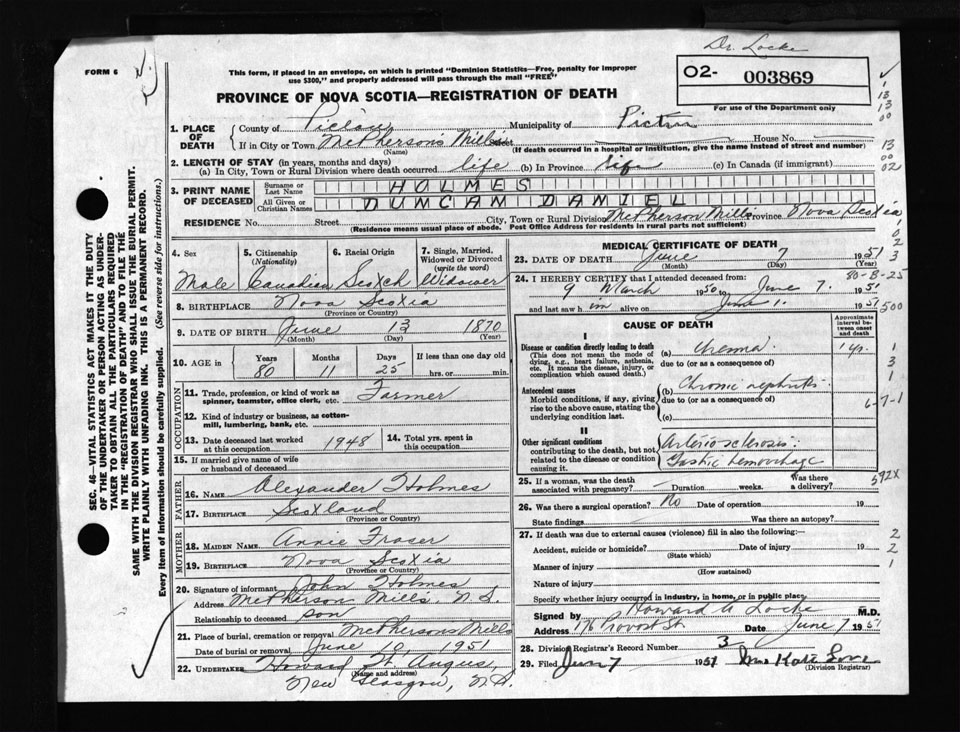 Dr. Locke
FORM 6
This form, if placed in an envelope, on which is printed "Dominion Statistics—Free, penalty for improper
use $300," and properly addressed will pass through the mail "FREE"
O2- 003869
PROVINCE OF NOVA SCOTIA—REGISTRATION OF DEATH
For use of the Department only
1. PLACE OF DEATH
County of Pictou Municipality of Pictou
If in City or Town McPherson's Mills Street House No.
(Name) (If death occurred in a hospital or institution, give the name instead of street and number)
2. LENGTH OF STAY (in years, months and days)
(a) In City, Town or Rural Division where death occurred life (b) In Province life (c) In Canada (if immigrant)
3. PRINT NAME OF DECEASED
Surname or Last Name HOLMES
All Given or Christian Names DUNCAN DANIEL
RESIDENCE No. Street City, Town or Rural Division McPherson Mills Province Nova Scotia
(Residence means usual place of abode. Post Office Address for residents in rural parts not sufficient)
4. Sex
Male
5. Citizenship
(Nationality)
Canadian
6. Racial Origin
Scotch
7. Single, Married,
Widowed or Divorced
(write the word)
Widower
8. BIRTHPLACE Nova Scotia
(Province or Country)
9. DATE OF BIRTH June 13 1870
(Month) (Day) (Year)
10. AGE in
Years Months Days If less than one day old
80 11 25 hrs. or min.
OCCUPATION
11. Trade, profession, or kind of work as
spinner, teamster, office clerk, etc. Farmer
12. Kind of industry or business, as cotton-
mill, lumbering, bank, etc.
13. Date deceased last worked
at this occupation 1948
14. Total yrs. spent in
this occupation
15. If married give name of wife
or husband of deceased
FATHER
16. NAME Alexander Holmes
17. BIRTHPLACE Scotland
(Province or Country)
MOTHER
18. MAIDEN NAME Annie Fraser
19. BIRTHPLACE Nova Scotia
(Province or Country)
20. Signature of informant John Holmes
Address McPherson Mills, N.S.
Relationship to deceased son
21. Place of burial, cremation or removal McPhersons Mills
Date of burial or removal June 10, 1951
22. UNDERTAKER Howard St. Angus,
(Name and address)
New Glasgow, N.S.
MEDICAL CERTIFICATE OF DEATH
23. DATE OF DEATH June 7 1951
(Month) (Day) (Year)
80-B-25
24. I HEREBY CERTIFY that I attended deceased from:
9 March 1950 to June 7. 1951
and last saw him alive on June 1. 1951
500
CAUSE OF DEATH
Approximate
interval be-
tween onset
and death
I
Disease or condition directly leading to death
(This does not mean the mode of
dying, e.g., heart failure, asthenia,
etc. It means the disease, injury, or
complication which caused death.)
(a) Uremia
due to (or as a consequence of)
Antecedent causes
Morbid conditions, if any, giving
rise to the above cause, stating the
underlying condition last.
(b) Chronic nephritis
due to (or as a consequence of)
(c)
6-7-1
II
Other significant conditions
contributing to the death, but not
related to the disease or condition
causing it.
Arteriosclerosis
Gastric hemorrhage
592X
25. If a woman, was the death
associated with pregnancy? Duration weeks. Was there
a delivery?
26. Was there a surgical operation? No Date of operation 19
State findings Was there an autopsy?
27. If death was due to external causes (violence) fill in also the following:—
Accident, suicide or homicide? Date of injury 19
(State which)
Manner of injury
(How sustained)
Nature of injury
Specify whether injury occurred in industry, in home, or in public place
Signed by Howard A Locke M.D.
Address 176 Provost St. Date June 7 1951
28. Division Registrar's Record Number 3
29. Filed June 7 1951 Mrs Kate
(Division Registrar)
SEC. 46—VITAL STATISTICS ACT MAKES IT THE DUTY
OF THE UNDERTAKER OR PERSON ACTING AS UNDER-
TAKER TO OBTAIN ALL THE PARTICULARS REQUIRED
IN THE "REGISTRATION OF DEATH" AND TO FILE THE
SAME WITH THE DIVISION REGISTRAR WHO SHALL ISSUE THE BURIAL PERMIT.
WRITE PLAINLY WITH UNFADING INK. THIS IS A PERMANENT RECORD.
Every item of Information should be carefully supplied. (See reverse side for instructions.)
1
13
13
00
13
00
02
1
0
2
3
1
3
1
2
2
1